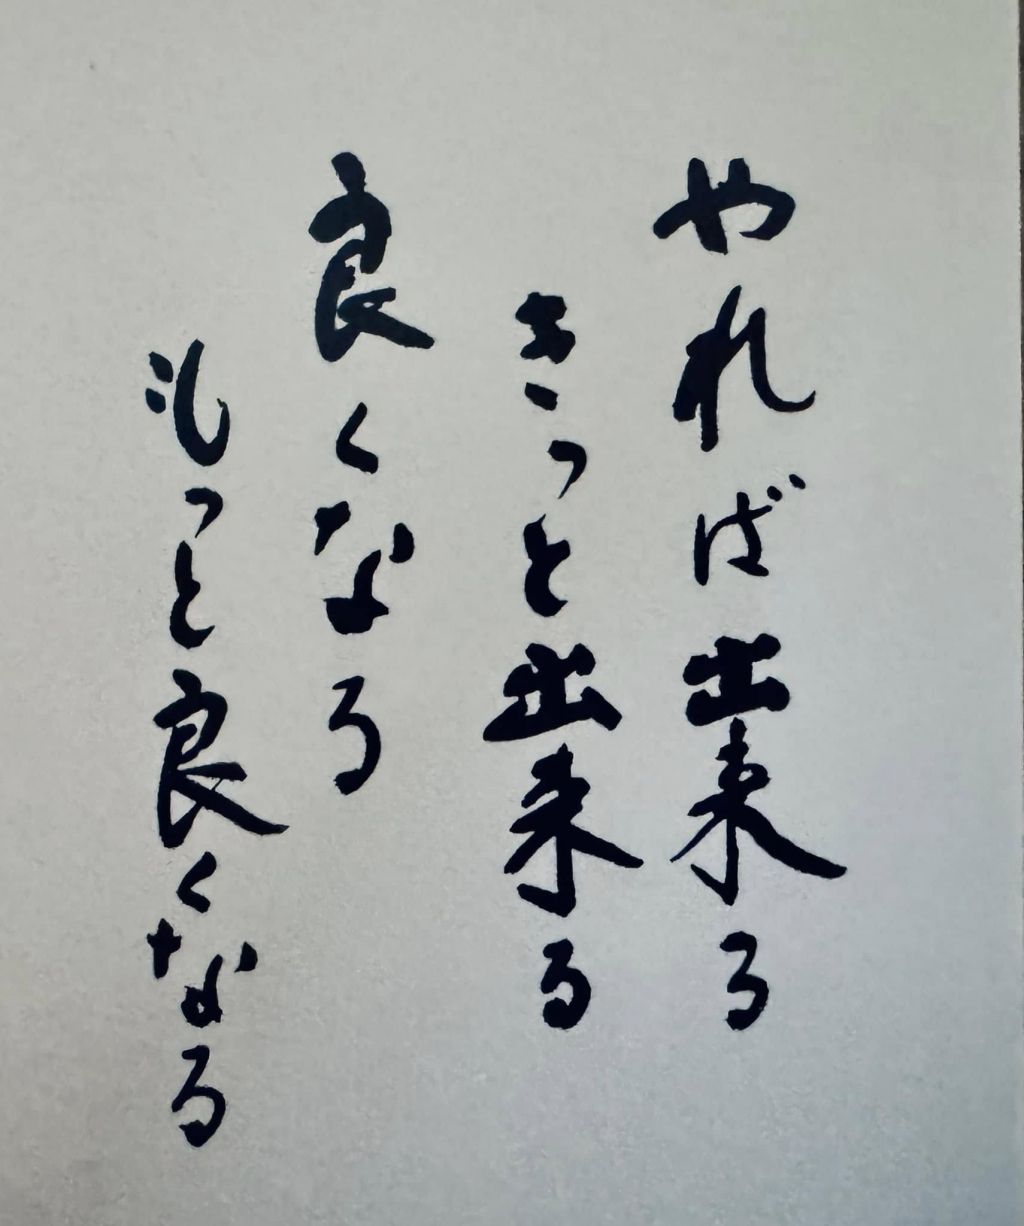 やれば出来る
きっと出来る
良くなる
もっと良くなる